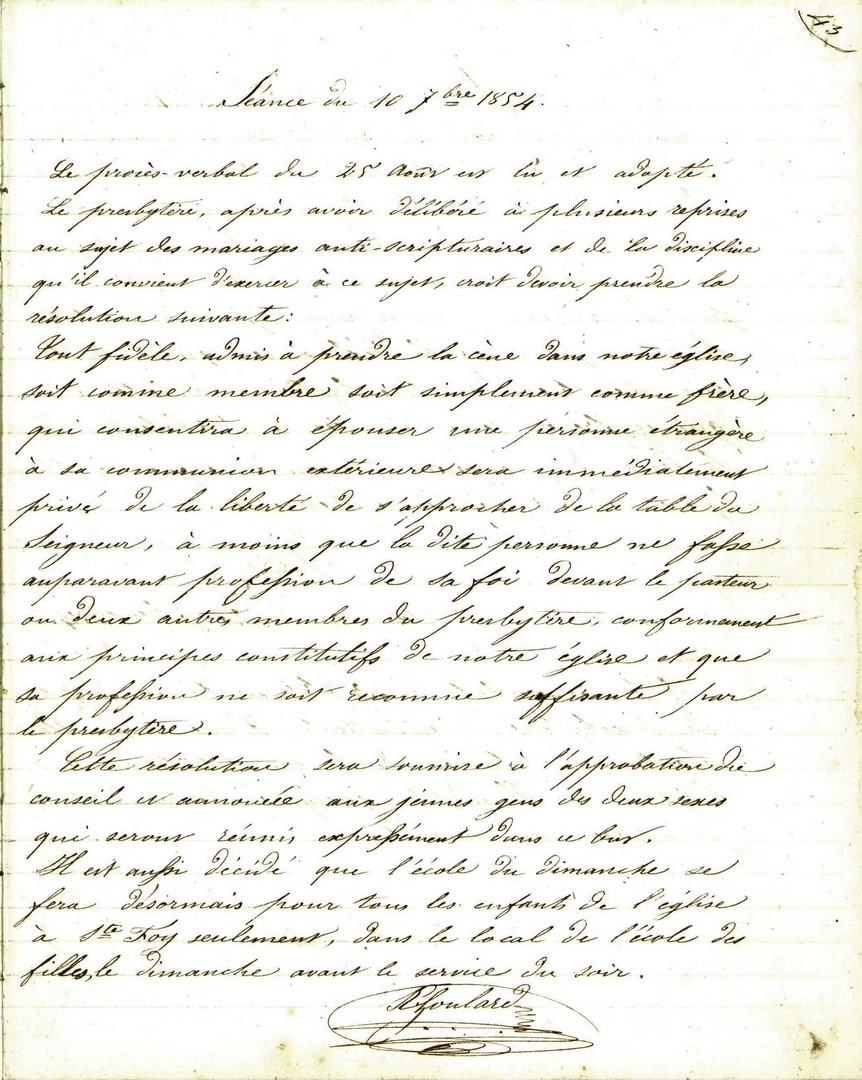 43
Séance du 10 7bre 1854.
Le procès-verbal du 25 Août est lu et adopté.
Le presbytère, après avoir délibéré à plusieurs reprises
au sujet des mariages anti-scripturaires et de la discipline
qu'il convient d'exercer à ce sujet, croit devoir prendre la
résolution suivante:
Tout fidèle, admis à prendre la cène dans notre église,
soit comme membre soit simplement comme frère,
qui consentira à épouser une personne étrangère
à sa communion extérieure sera immédiatement
privé de la liberté de s'approcher de la table du
Seigneur, à moins que la dite personne ne fasse
auparavant profession de sa foi devant le pasteur
ou deux autres membres du presbytère, conformément
aux principes constitutifs de notre église et que
sa profession ne soit reconnue suffisante par
le presbytère.
Cette résolution sera soumise à l'approbation du
conseil et annoncée aux jeunes gens des deux sexes
qui seront réunis expressément dans ce but.
Il est aussi décidé que l'école du dimanche se
fera désormais pour tous les enfants de l'église
à Ste Foy seulement, dans le local de l'école des
filles, le dimanche avant le service du soir.